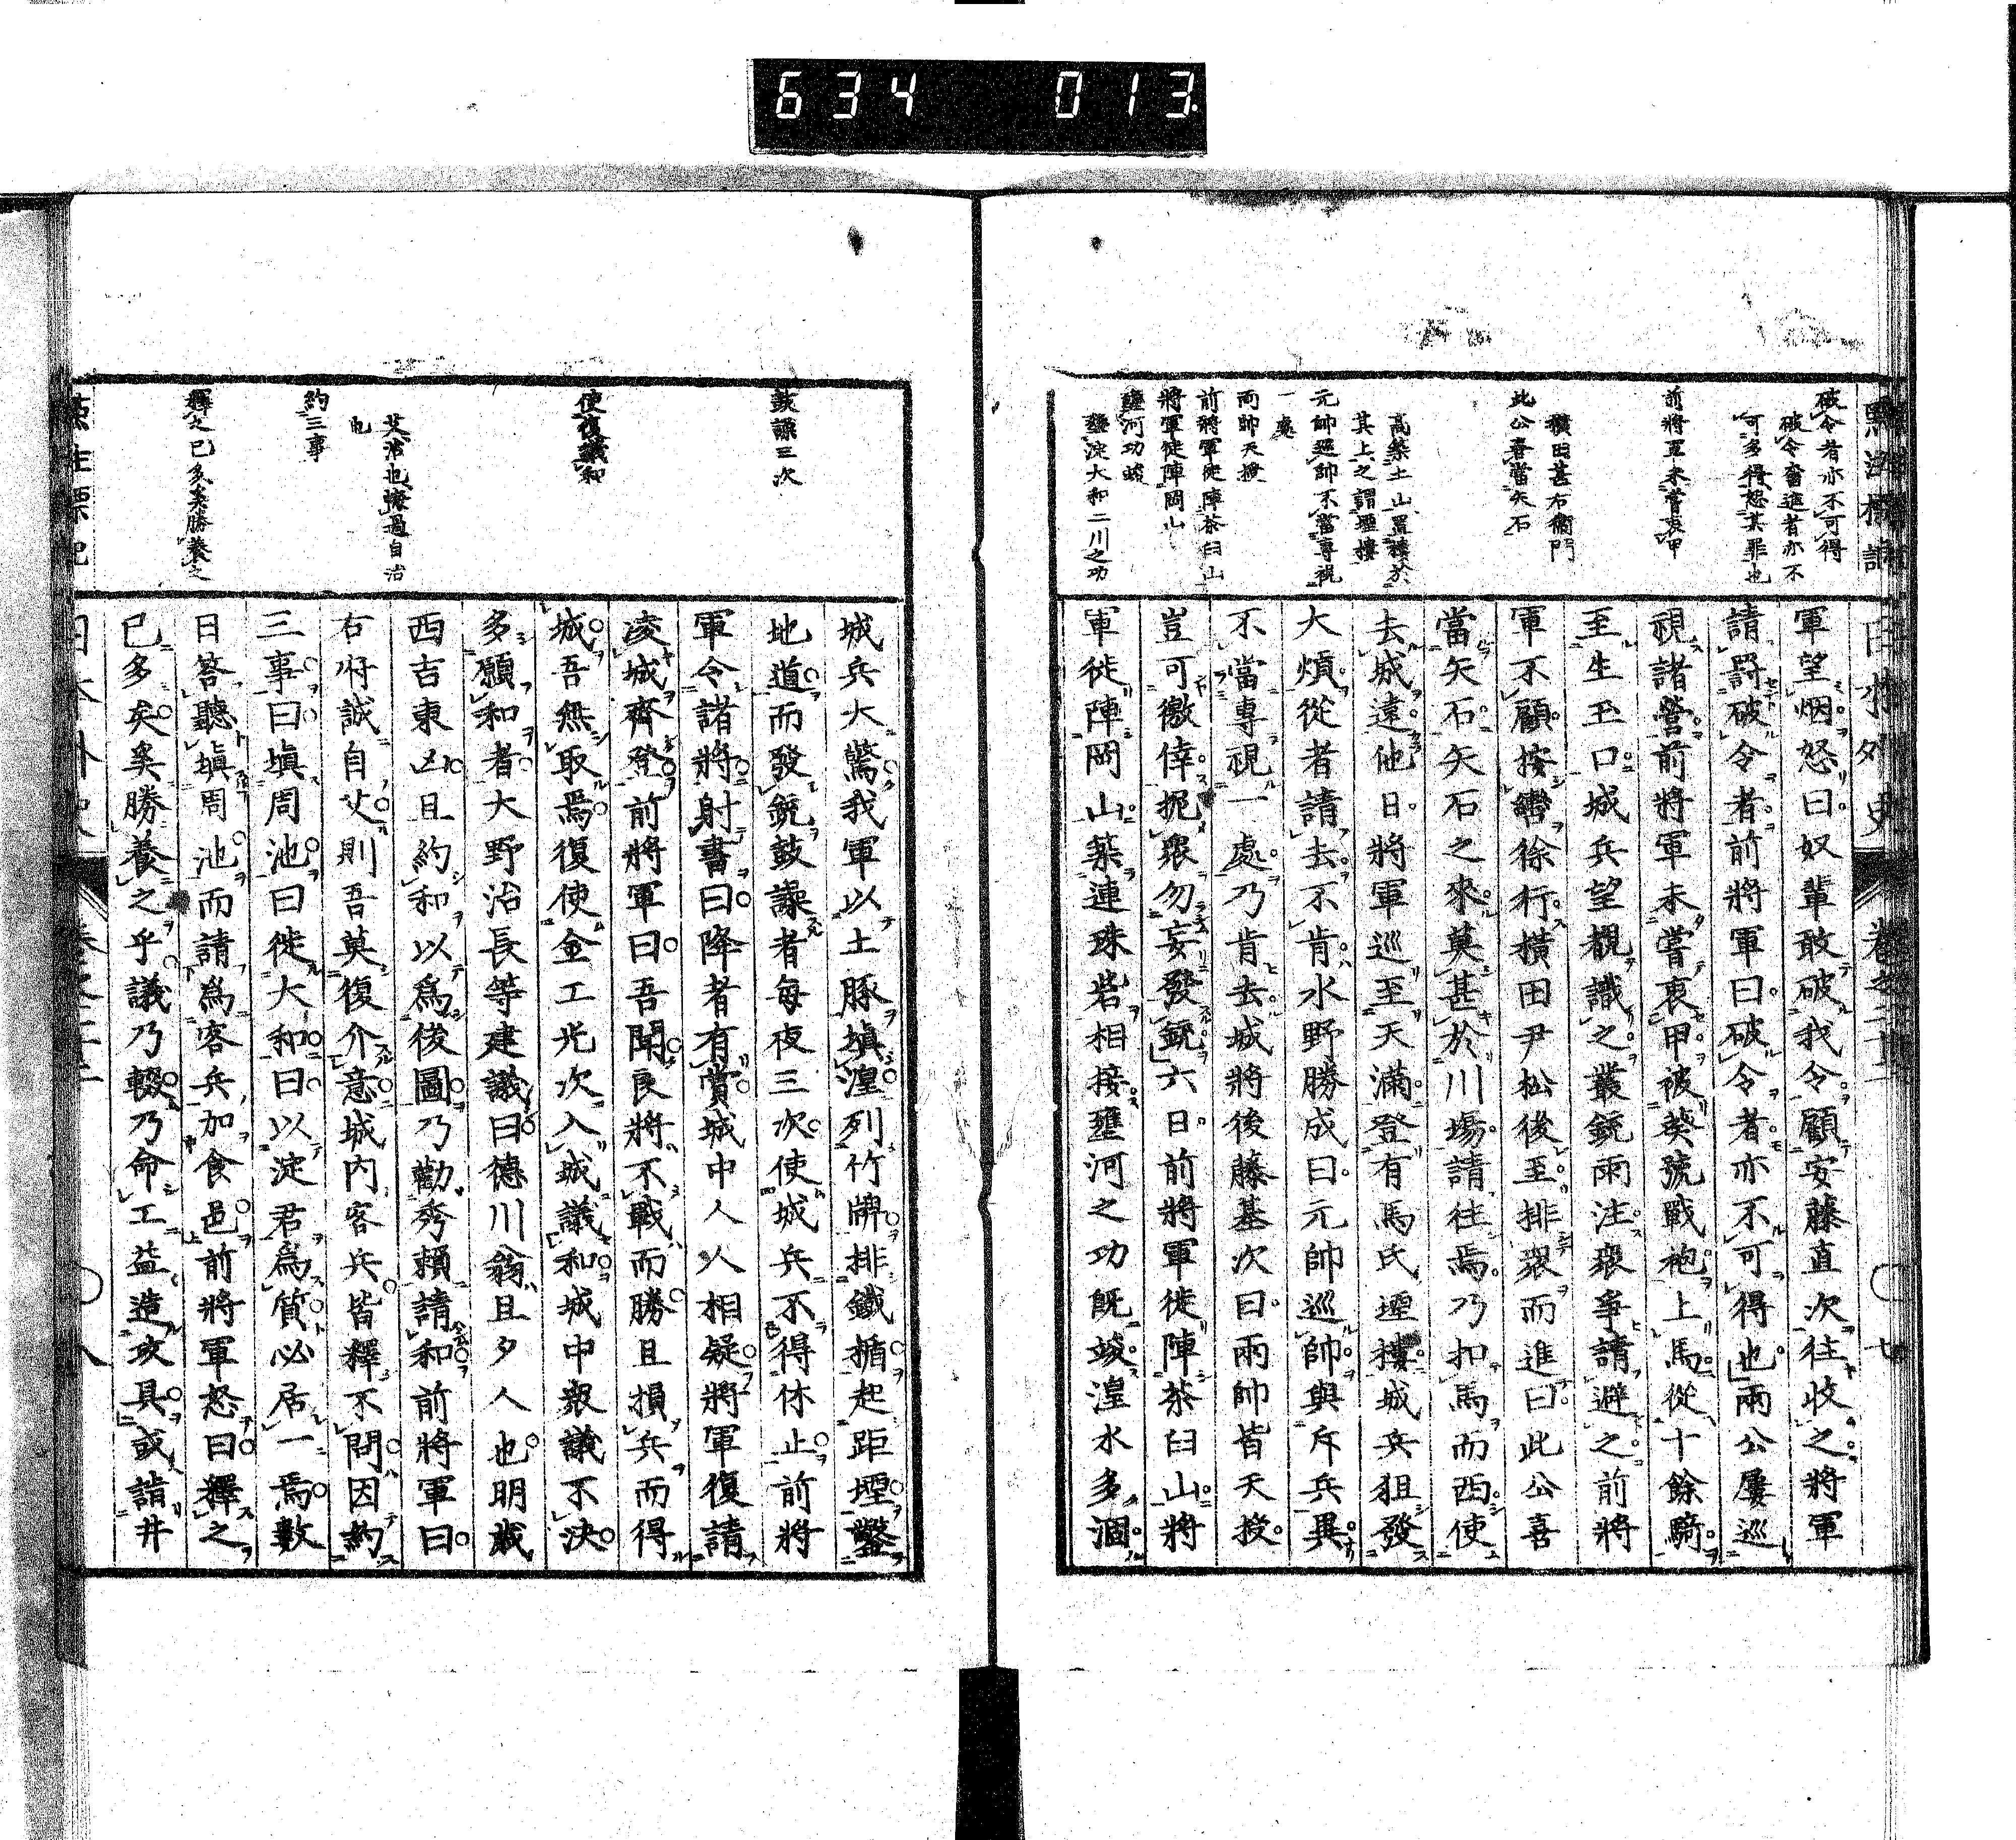 634 013
日本外史 卷之二十二 七
破令者亦不可得
破令奮進者亦不
可多得、恕其罪也
前將軍未嘗衷甲
橫田甚右衞門
此公喜當矢石
高築土山置樓於
其上之謂堙樓
元帥巡帥不當專視
一處
兩帥天授
前將軍徙陣茶臼山
將軍徙陣岡山
壅河功竣
壅淀大和二川之功
軍望烟怒曰奴輩敢破我令顧安藤直次往收之將軍
請罸破令者前將軍曰破令者亦不可得也兩公屢巡
視諸營前將軍未嘗衷甲被葵號戰袍上馬從十餘騎
至生玉口城兵望覩識之叢銃雨注衆爭請避之前將
軍不顧按轡徐行橫田尹松後至排衆而進曰此公喜
當矢石矢石之來莫甚於川場請往焉乃扣馬而西使
去城遠他日將軍巡至天滿登有馬氏堙樓城兵狙發
大煩從者請去不肯水野勝成曰元帥巡帥與斥兵異
不當專視一處乃肯去城將後藤基次曰兩帥皆天授
豈可徼倖扼衆勿妄發銃六日前將軍徙陣茶臼山將
軍徙陣岡山築連珠砦相接壅河之功既竣湟水多涸
鼓譟三次
使復議和
艾治也、懲過自治
也
約三事
釋之已多矣勝養之
城兵大驚我軍以土豚塡湟列竹牌排鐵楯起距堙鑿
地道而發銃鼓譟者每夜三次使城兵不得休止前將
軍令諸將射書曰降者有賞城中人人相疑將軍復請
凌城齊登前將軍曰吾聞良將不戰而勝且損兵而得
城吾無取焉復使金工光次入城議和城中衆議不決
多願和者大野治長等建議曰德川翁且夕人也明歲
西吉東凶且約和以爲後圖乃勸秀賴請和前將軍曰
右府誠自艾則吾莫復介意城內客兵皆釋不問因約
三事曰塡周池曰徙大和曰以淀君爲質必居一焉數
日答聽塡周池而請爲客兵加食邑前將軍怒曰釋之
已多矣奚勝養之乎議乃輟乃命工益造攻具或請井